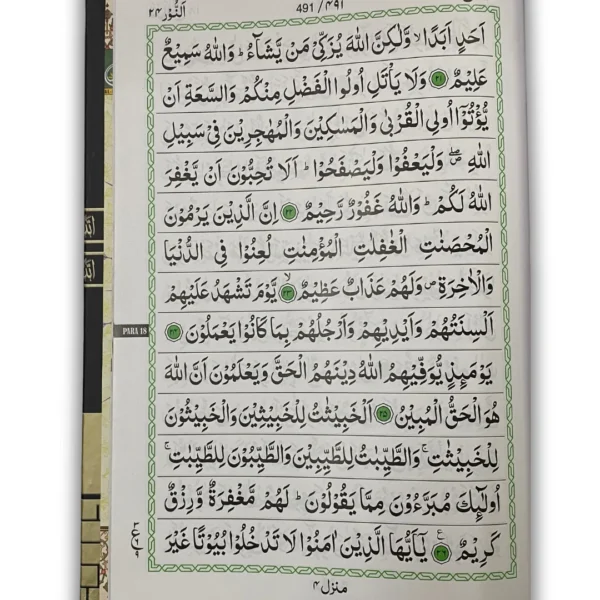 اَلنُّوْر ٢٤
491 / ٤٩١
اَحَدٍ اَبَدًا ۙ وَّلٰكِنَّ اللّٰهَ يُزَكِّيْ مَنْ يَّشَآءُ ؕ وَاللّٰهُ سَمِيْعٌ
عَلِيْمٌ ٢١ وَلَا يَاْتَلِ اُولُوا الْفَضْلِ مِنْكُمْ وَالسَّعَةِ اَنْ
يُّؤْتُوْۤا اُولِي الْقُرْبٰى وَالْمَسٰكِيْنَ وَالْمُهٰجِرِيْنَ فِيْ سَبِيْلِ
اللّٰهِ ۖ وَلْيَعْفُوْا وَلْيَصْفَحُوْا ؕ اَلَا تُحِبُّوْنَ اَنْ يَّغْفِرَ
اللّٰهُ لَكُمْ ؕ وَاللّٰهُ غَفُوْرٌ رَّحِيْمٌ ٢٢ اِنَّ الَّذِيْنَ يَرْمُوْنَ
الْمُحْصَنٰتِ الْغٰفِلٰتِ الْمُؤْمِنٰتِ لُعِنُوْا فِي الدُّنْيَا
وَالْاٰخِرَةِ ۪ وَلَهُمْ عَذَابٌ عَظِيْمٌ ٢٣ ۙ يَّوْمَ تَشْهَدُ عَلَيْهِمْ
اَلْسِنَتُهُمْ وَاَيْدِيْهِمْ وَاَرْجُلُهُمْ بِمَا كَانُوْا يَعْمَلُوْنَ ٢٤
PARA 18
يَوْمَئِذٍ يُّوَفِّيْهِمُ اللّٰهُ دِيْنَهُمُ الْحَقَّ وَيَعْلَمُوْنَ اَنَّ اللّٰهَ
هُوَ الْحَقُّ الْمُبِيْنُ ٢٥ اَلْخَبِيْثٰتُ لِلْخَبِيْثِيْنَ وَالْخَبِيْثُوْنَ
لِلْخَبِيْثٰتِ ۚ وَالطَّيِّبٰتُ لِلطَّيِّبِيْنَ وَالطَّيِّبُوْنَ لِلطَّيِّبٰتِ ۚ
اُولٰٓئِكَ مُبَرَّءُوْنَ مِمَّا يَقُوْلُوْنَ ؕ لَهُمْ مَّغْفِرَةٌ وَّرِزْقٌ
كَرِيْمٌ ٢٦ ع يٰۤاَيُّهَا الَّذِيْنَ اٰمَنُوْا لَا تَدْخُلُوْا بُيُوْتًا غَيْرَ
منزل ٤